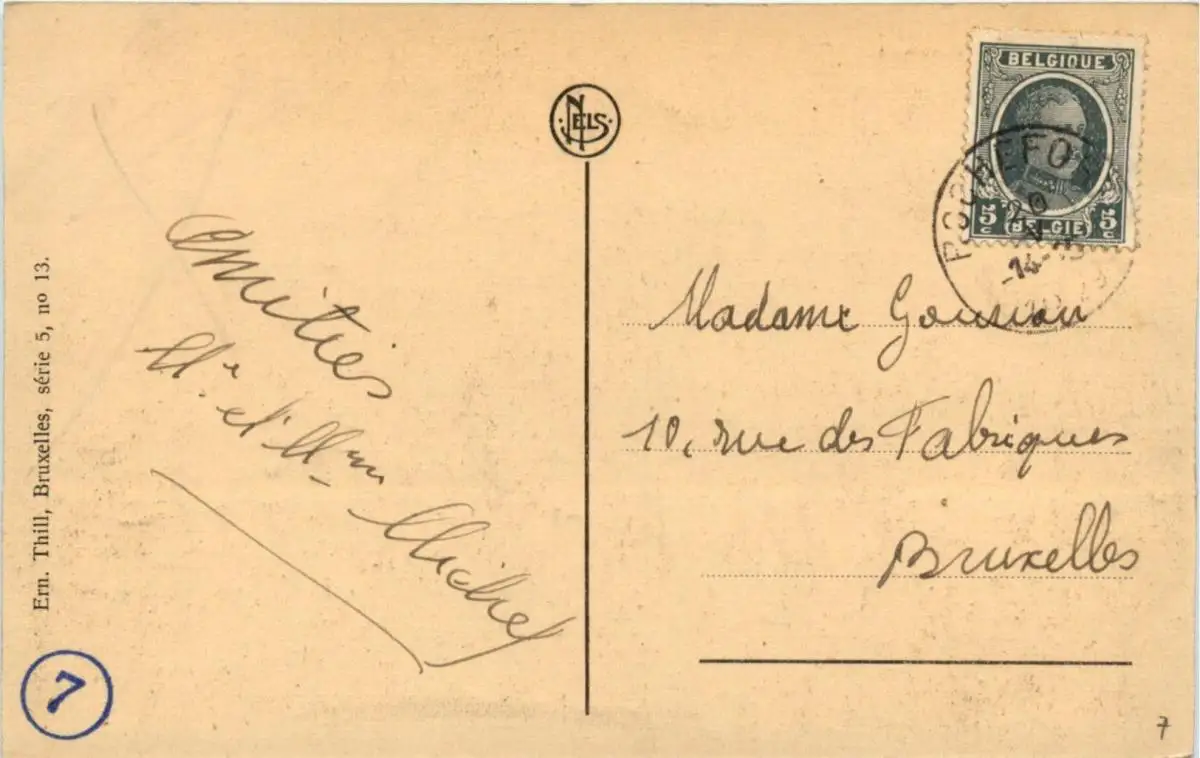 Ern. Thill, Bruxelles, série 5, no 13.
NELS
Amitiés
Mr et Mme
Michel
BELGIQUE
5c 5c
BELGIE
20
14-15
Madame
10, rue des Fabriques
Bruxelles
7
7